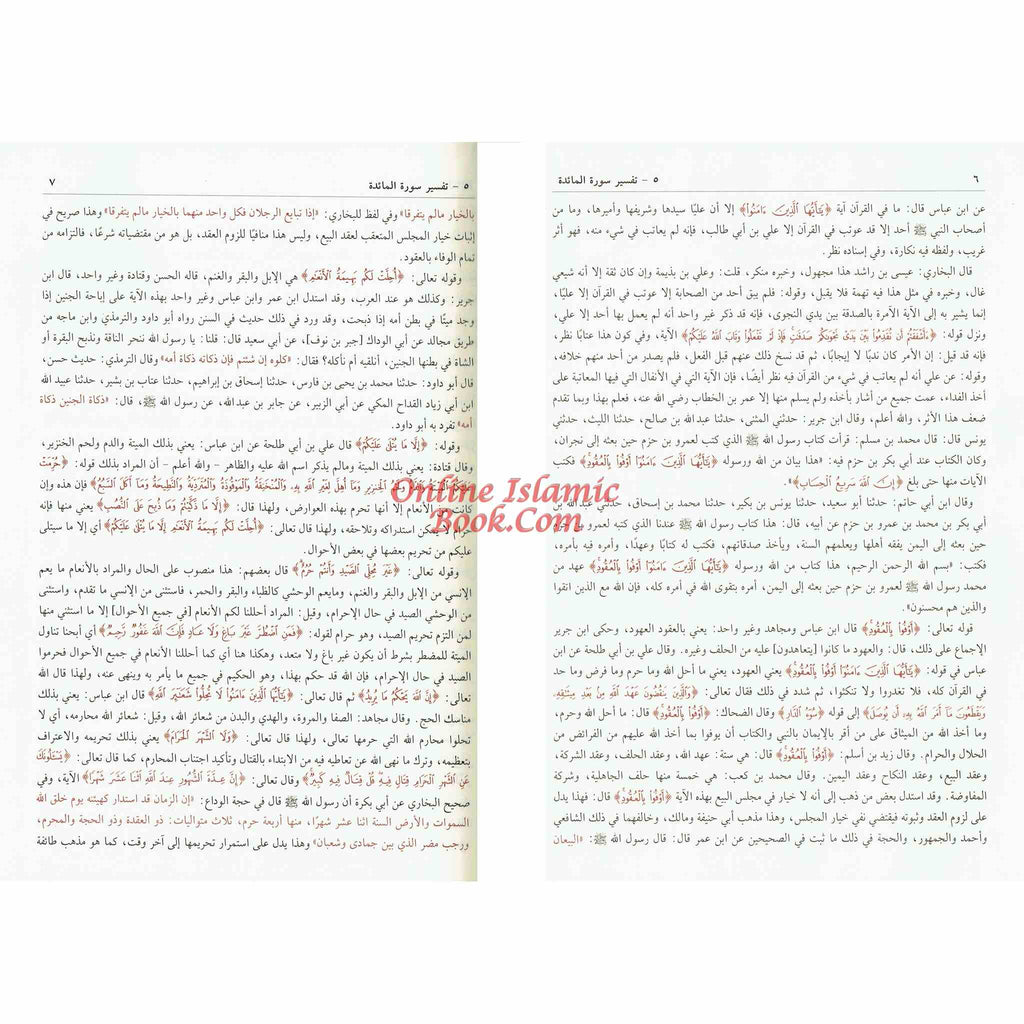 ٦ ٥ - تفسير سورة المائدة
عن ابن عباس قال: ما في القرآن آية ﴿يَٰٓأَيُّهَا ٱلَّذِينَ ءَامَنُوٓا۟﴾ إلا أن عليًا سيدها وشريفها وأميرها، وما من
أصحاب النبي ﷺ أحد إلا قد عوتب في القرآن إلا علي بن أبي طالب، فإنه لم يعاتب في شيء منه، فهو أثر
غريب، ولفظه فيه نكارة، وفي إسناده نظر.
قال البخاري: عيسى بن راشد هذا مجهول، وخبره منكر، قلت: وعلي بن بذيمة وإن كان ثقة إلا أنه شيعي
غال، وخبره في مثل هذا فيه تهمة فلا يقبل، وقوله: فلم يبق أحد من الصحابة إلا عوتب في القرآن إلا عليًا،
إنما يشير به إلى الآية الآمرة بالصدقة بين يدي النجوى، فإنه قد ذكر غير واحد أنه لم يعمل بها أحد إلا علي،
ونزل قوله: ﴿ءَأَشْفَقْتُمْ أَن تُقَدِّمُوا۟ بَيْنَ يَدَىْ نَجْوَىٰكُمْ صَدَقَٰتٍ فَإِذْ لَمْ تَفْعَلُوا۟ وَتَابَ ٱللَّهُ عَلَيْكُمْ﴾ الآية، وفي كون هذا عتابًا نظر،
فإنه قد قيل: إن الأمر كان ندبًا لا إيجابًا، ثم قد نسخ ذلك عنهم قبل الفعل، فلم يصدر من أحد منهم خلافه،
وقوله: عن علي أنه لم يعاتب في شيء من القرآن فيه نظر أيضًا، فإن الآية التي في الأنفال التي فيها المعاتبة على
أخذ الفداء، عمت جميع من أشار بأخذه ولم يسلم منها إلا عمر بن الخطاب رضي الله عنه، فعلم بهذا وبما تقدم
ضعف هذا الأثر، والله أعلم، وقال ابن جرير: حدثني المثنى، حدثنا عبد الله بن صالح، حدثنا الليث، حدثني
يونس قال: قال محمد بن مسلم: قرأت كتاب رسول الله ﷺ الذي كتب لعمرو بن حزم حين بعثه إلى نجران،
وكان الكتاب عند أبي بكر بن حزم فيه: «هذا بيان من الله ورسوله ﴿يَٰٓأَيُّهَا ٱلَّذِينَ ءَامَنُوٓا۟ أَوْفُوا۟ بِٱلْعُقُودِ﴾ فكتب
الآيات منها حتى بلغ ﴿إِنَّ ٱللَّهَ سَرِيعُ ٱلْحِسَابِ﴾».
وقال ابن أبي حاتم: حدثنا أبو سعيد، حدثنا يونس بن بكير، حدثنا محمد بن إسحاق، حدثني عبد الله بن
أبي بكر بن محمد بن عمرو بن حزم عن أبيه، قال: هذا كتاب رسول الله ﷺ عندنا الذي كتبه لعمرو بن حزم
حين بعثه إلى اليمن يفقه أهلها ويعلمهم السنة، ويأخذ صدقاتهم، فكتب له كتابًا وعهدًا، وأمره فيه بأمره،
فكتب: «بسم الله الرحمن الرحيم، هذا كتاب من الله ورسوله ﴿يَٰٓأَيُّهَا ٱلَّذِينَ ءَامَنُوٓا۟ أَوْفُوا۟ بِٱلْعُقُودِ﴾ عهد من
محمد رسول الله ﷺ لعمرو بن حزم حين بعثه إلى اليمن، أمره بتقوى الله في أمره كله، فإن الله مع الذين اتقوا
والذين هم محسنون».
قوله تعالى: ﴿أَوْفُوا۟ بِٱلْعُقُودِ﴾ قال ابن عباس ومجاهد وغير واحد: يعني بالعقود العهود، وحكى ابن جرير
الإجماع على ذلك، قال: والعهود ما كانوا [يتعاهدون] عليه من الحلف وغيره. وقال علي بن أبي طلحة عن ابن
عباس في قوله: ﴿يَٰٓأَيُّهَا ٱلَّذِينَ ءَامَنُوٓا۟ أَوْفُوا۟ بِٱلْعُقُودِ﴾ يعني العهود، يعني ما أحل الله وما حرم وما فرض وما حد
في القرآن كله، فلا تغدروا ولا تنكثوا، ثم شدد في ذلك فقال تعالى: ﴿وَٱلَّذِينَ يَنقُضُونَ عَهْدَ ٱللَّهِ مِنۢ بَعْدِ مِيثَٰقِهِۦ
وَيَقْطَعُونَ مَآ أَمَرَ ٱللَّهُ بِهِۦٓ أَن يُوصَلَ﴾ إلى قوله ﴿سُوٓءُ ٱلدَّارِ﴾ وقال الضحاك: ﴿أَوْفُوا۟ بِٱلْعُقُودِ﴾ قال: ما أحل الله وحرم،
وما أخذ الله من الميثاق على من أقر بالإيمان بالنبي والكتاب أن يوفوا بما أخذ الله عليهم من الفرائض من
الحلال والحرام. وقال زيد بن أسلم: ﴿أَوْفُوا۟ بِٱلْعُقُودِ﴾ قال: هي ستة: عهد الله، وعقد الحلف، وعقد الشركة،
وعقد البيع، وعقد النكاح وعقد اليمين. وقال محمد بن كعب: هي خمسة منها حلف الجاهلية، وشركة
المفاوضة. وقد استدل بعض من ذهب إلى أنه لا خيار في مجلس البيع بهذه الآية ﴿أَوْفُوا۟ بِٱلْعُقُودِ﴾ قال: فهذا يدل
على لزوم العقد وثبوته فيقتضي نفي خيار المجلس، وهذا مذهب أبي حنيفة ومالك، وخالفهما في ذلك الشافعي
وأحمد والجمهور، والحجة في ذلك ما ثبت في الصحيحين عن ابن عمر قال: قال رسول الله ﷺ: «البيعان
٥ - تفسير سورة المائدة ٧
بالخيار مالم يتفرقا» وفي لفظ للبخاري: «إذا تبايع الرجلان فكل واحد منهما بالخيار مالم يتفرقا» وهذا صريح في
إثبات خيار المجلس المتعقب لعقد البيع، وليس هذا منافيًا للزوم العقد، بل هو من مقتضياته شرعًا، فالتزامه من
تمام الوفاء بالعقود.
وقوله تعالى: ﴿أُحِلَّتْ لَكُم بَهِيمَةُ ٱلْأَنْعَٰمِ﴾ هي الإبل والبقر والغنم، قاله الحسن وقتادة وغير واحد، قال ابن
جرير: وكذلك هو عند العرب، وقد استدل ابن عمر وابن عباس وغير واحد بهذه الآية على إباحة الجنين إذا
وجد ميتًا في بطن أمه إذا ذبحت، وقد ورد في ذلك حديث في السنن رواه أبو داود والترمذي وابن ماجه من
طريق مجالد عن أبي الوداك [جبر بن نوف]، عن أبي سعيد قال: قلنا: يا رسول الله ننحر الناقة ونذبح البقرة أو
الشاة في بطنها الجنين، أنلقيه أم نأكله؟ فقال: «كلوه إن شئتم فإن ذكاته ذكاة أمه» وقال الترمذي: حديث حسن،
قال أبو داود: حدثنا محمد بن يحيى بن فارس، حدثنا إسحاق بن إبراهيم، حدثنا عتاب بن بشير، حدثنا عبيد الله
ابن أبي زياد القداح المكي عن أبي الزبير، عن جابر بن عبدالله، عن رسول الله ﷺ، قال: «ذكاة الجنين ذكاة
أمه» تفرد به أبو داود.
وقوله: ﴿إِلَّا مَا يُتْلَىٰ عَلَيْكُمْ﴾ قال علي بن أبي طلحة عن ابن عباس: يعني بذلك الميتة والدم ولحم الخنزير،
وقال قتادة: يعني بذلك الميتة ومالم يذكر اسم الله عليه والظاهر - والله أعلم - أن المراد بذلك قوله: ﴿حُرِّمَتْ
عَلَيْكُمُ ٱلْمَيْتَةُ وَٱلدَّمُ وَلَحْمُ ٱلْخِنزِيرِ وَمَآ أُهِلَّ لِغَيْرِ ٱللَّهِ بِهِۦ وَٱلْمُنْخَنِقَةُ وَٱلْمَوْقُوذَةُ وَٱلْمُتَرَدِّيَةُ وَٱلنَّطِيحَةُ وَمَآ أَكَلَ ٱلسَّبُعُ﴾ فإن هذه وإن
كانت من الأنعام إلا أنها تحرم بهذه العوارض، ولهذا قال: ﴿إِلَّا مَا ذَكَّيْتُمْ وَمَا ذُبِحَ عَلَى ٱلنُّصُبِ﴾ يعني منها فإنه
حرام لا يمكن استدراكه وتلاحقه، ولهذا قال تعالى: ﴿أُحِلَّتْ لَكُم بَهِيمَةُ ٱلْأَنْعَٰمِ إِلَّا مَا يُتْلَىٰ عَلَيْكُمْ﴾ أي إلا ما سيتلى
عليكم من تحريم بعضها في بعض الأحوال.
وقوله تعالى: ﴿غَيْرَ مُحِلِّى ٱلصَّيْدِ وَأَنتُمْ حُرُمٌ﴾ قال بعضهم: هذا منصوب على الحال والمراد بالأنعام ما يعم
الإنسي من الإبل والبقر والغنم، ومايعم الوحشي كالظباء والبقر والحمر، فاستثنى من الإنسي ما تقدم، واستثنى
من الوحشي الصيد في حال الإحرام، وقيل: المراد أحللنا لكم الأنعام [في جميع الأحوال] إلا ما استثني منها
لمن التزم تحريم الصيد، وهو حرام لقوله: ﴿فَمَنِ ٱضْطُرَّ غَيْرَ بَاغٍ وَلَا عَادٍ فَإِنَّ ٱللَّهَ غَفُورٌ رَّحِيمٌ﴾ أي أبحنا تناول
الميتة للمضطر بشرط أن يكون غير باغ ولا متعد، وهكذا هنا أي كما أحللنا الأنعام في جميع الأحوال فحرموا
الصيد في حال الإحرام، فإن الله قد حكم بهذا، وهو الحكيم في جميع ما يأمر به وينهى عنه، ولهذا قال الله
تعالى: ﴿إِنَّ ٱللَّهَ يَحْكُمُ مَا يُرِيدُ﴾ ثم قال تعالى: ﴿يَٰٓأَيُّهَا ٱلَّذِينَ ءَامَنُوا۟ لَا تُحِلُّوا۟ شَعَٰٓئِرَ ٱللَّهِ﴾ قال ابن عباس: يعني بذلك
مناسك الحج. وقال مجاهد: الصفا والمروة، والهدي والبدن من شعائر الله، وقيل: شعائر الله محارمه، أي لا
تحلوا محارم الله التي حرمها تعالى، ولهذا قال تعالى: ﴿وَلَا ٱلشَّهْرَ ٱلْحَرَامَ﴾ يعني بذلك تحريمه والاعتراف
بتعظيمه، وترك ما نهى الله عن تعاطيه فيه من الابتداء بالقتال وتأكيد اجتناب المحارم، كما قال تعالى: ﴿يَسْـَٔلُونَكَ
عَنِ ٱلشَّهْرِ ٱلْحَرَامِ قِتَالٍ فِيهِ قُلْ قِتَالٌ فِيهِ كَبِيرٌ﴾ وقال تعالى: ﴿إِنَّ عِدَّةَ ٱلشُّهُورِ عِندَ ٱللَّهِ ٱثْنَا عَشَرَ شَهْرًا﴾ الآية، وفي
صحيح البخاري عن أبي بكرة أن رسول الله ﷺ قال في حجة الوداع: «إن الزمان قد استدار كهيئته يوم خلق الله
السموات والأرض السنة اثنا عشر شهرًا، منها أربعة حرم، ثلاث متواليات: ذو القعدة وذو الحجة والمحرم،
ورجب مضر الذي بين جمادى وشعبان» وهذا يدل على استمرار تحريمها إلى آخر وقت، كما هو مذهب طائفة
Online Islamic
Book.Com